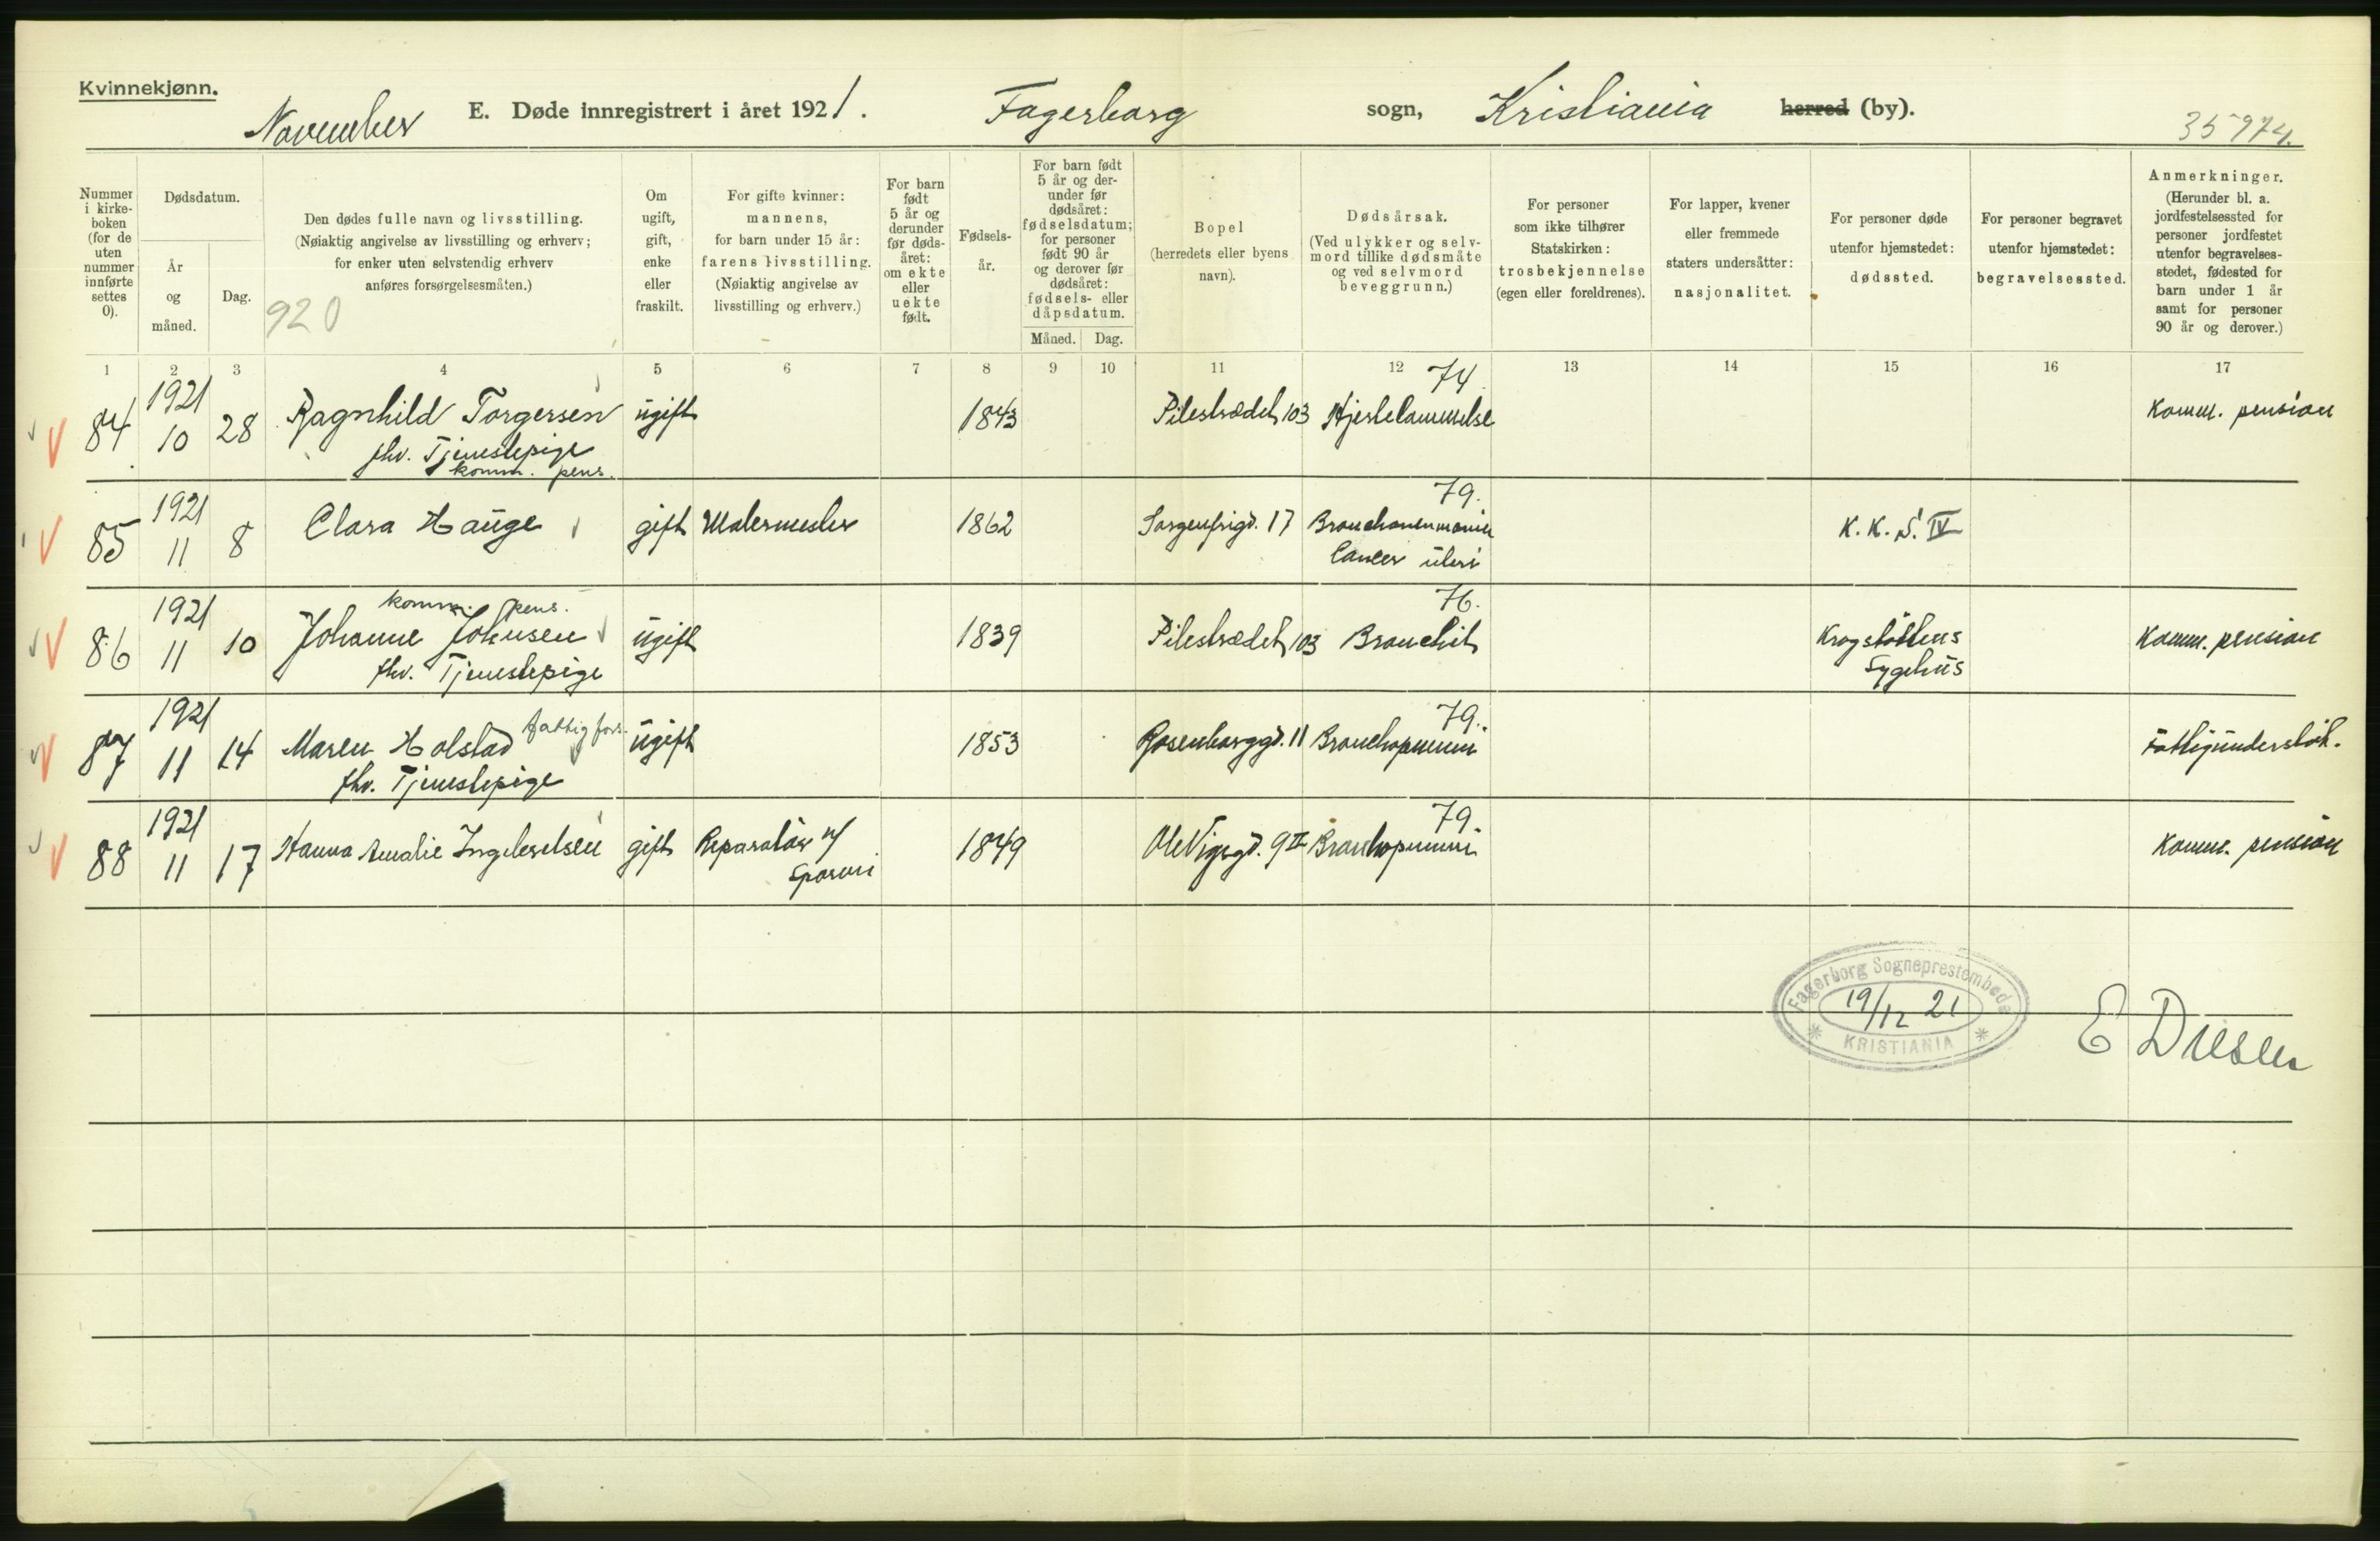 Kvinnekjønn.
November E. Døde innregistrert i året 1921. Fagerborg sogn, Kristiania herred (by).
35974.
Nummer i kirke-boken (for de uten nummer innførte settes 0).
Dødsdatum.
År og måned.
Dag.
Den dødes fulle navn og livsstilling.
(Nøiaktig angivelse av livsstilling og erhverv;
for enker uten selvstendig erhverv
anføres forsørgelsesmåten.)
920
Om ugift, gift, enke eller fraskilt.
For gifte kvinner: mannens, for barn under 15 år: farens livsstilling. (Nøiaktig angivelse av livsstilling og erhverv.)
For barn født 5 år og derunder før døds-året: om ekte eller uekte født.
Fødsels-år.
For barn født 5 år og der-under før dødsåret: fødselsdatum; for personer født 90 år og derover før dødsåret: fødsels- eller dåpsdatum.
Måned. Dag.
Bopel
(herredets eller byens navn).
Dødsårsak.
(Ved ulykker og selv-mord tillike dødsmåte og ved selvmord beveggrunn.)
For personer som ikke tilhører Statskirken: trosbekjennelse (egen eller foreldrenes).
For lapper, kvener eller fremmede staters undersåtter: nasjonalitet.
For personer døde utenfor hjemstedet: dødssted.
For personer begravet utenfor hjemstedet: begravelsessted.
Anmerkninger.
(Herunder bl. a. jordfestelsessted for personer jordfestet utenfor begravelses-stedet, fødested for barn under 1 år samt for personer 90 år og derover.)
1 2 3 4 5 6 7 8 9 10 11 12 13 14 15 16 17
84 1921 10 28 Ragnhild Torgersen ugift 1843 Pilestrædet 103 74. Hjertelammelse Komm. pension
fhv. Tjenestepige
komm. pens.
85 1921 11 8 Clara Hauge gift Malermester 1862 Sorgenfrigd. 17 79. K.K.S. IV
Cancer uteri
komm. pens.
86 1921 11 10 Johanne Johnsen ugift 1839 Pilestrædet 103 76. Bronchit Krogstøttens Sygehus Komm. pension
fhv. Tjenestepige
87 1921 11 14 Maren Holstad fattigfors. ugift 1853 Rosenborggd. 11 79. Bronchopneumoni Fattigunderstøt.
fhv. Tjenestepige
88 1921 11 17 Hanna Amalie Ingebretsen gift Reparatør v/ Sporvei 1849 Ole Vigsgd. 9 II 79. Bronchopneumoni Komm. pension
Fagerborg Sogneprestembede
19/12 21
KRISTIANIA